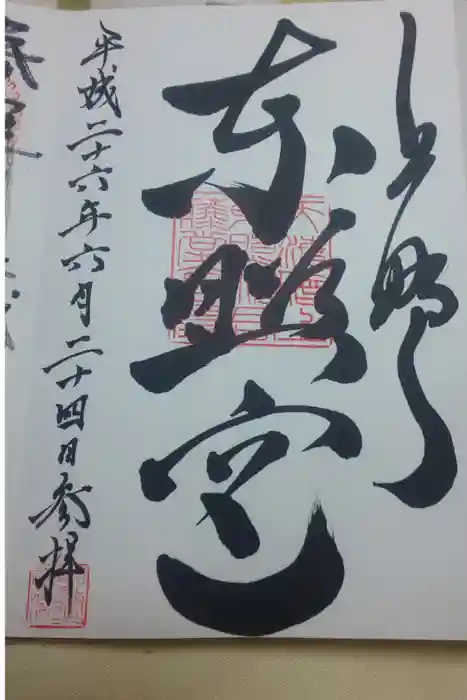 上野
東照宮
平成二十六年六月二十四日参拝